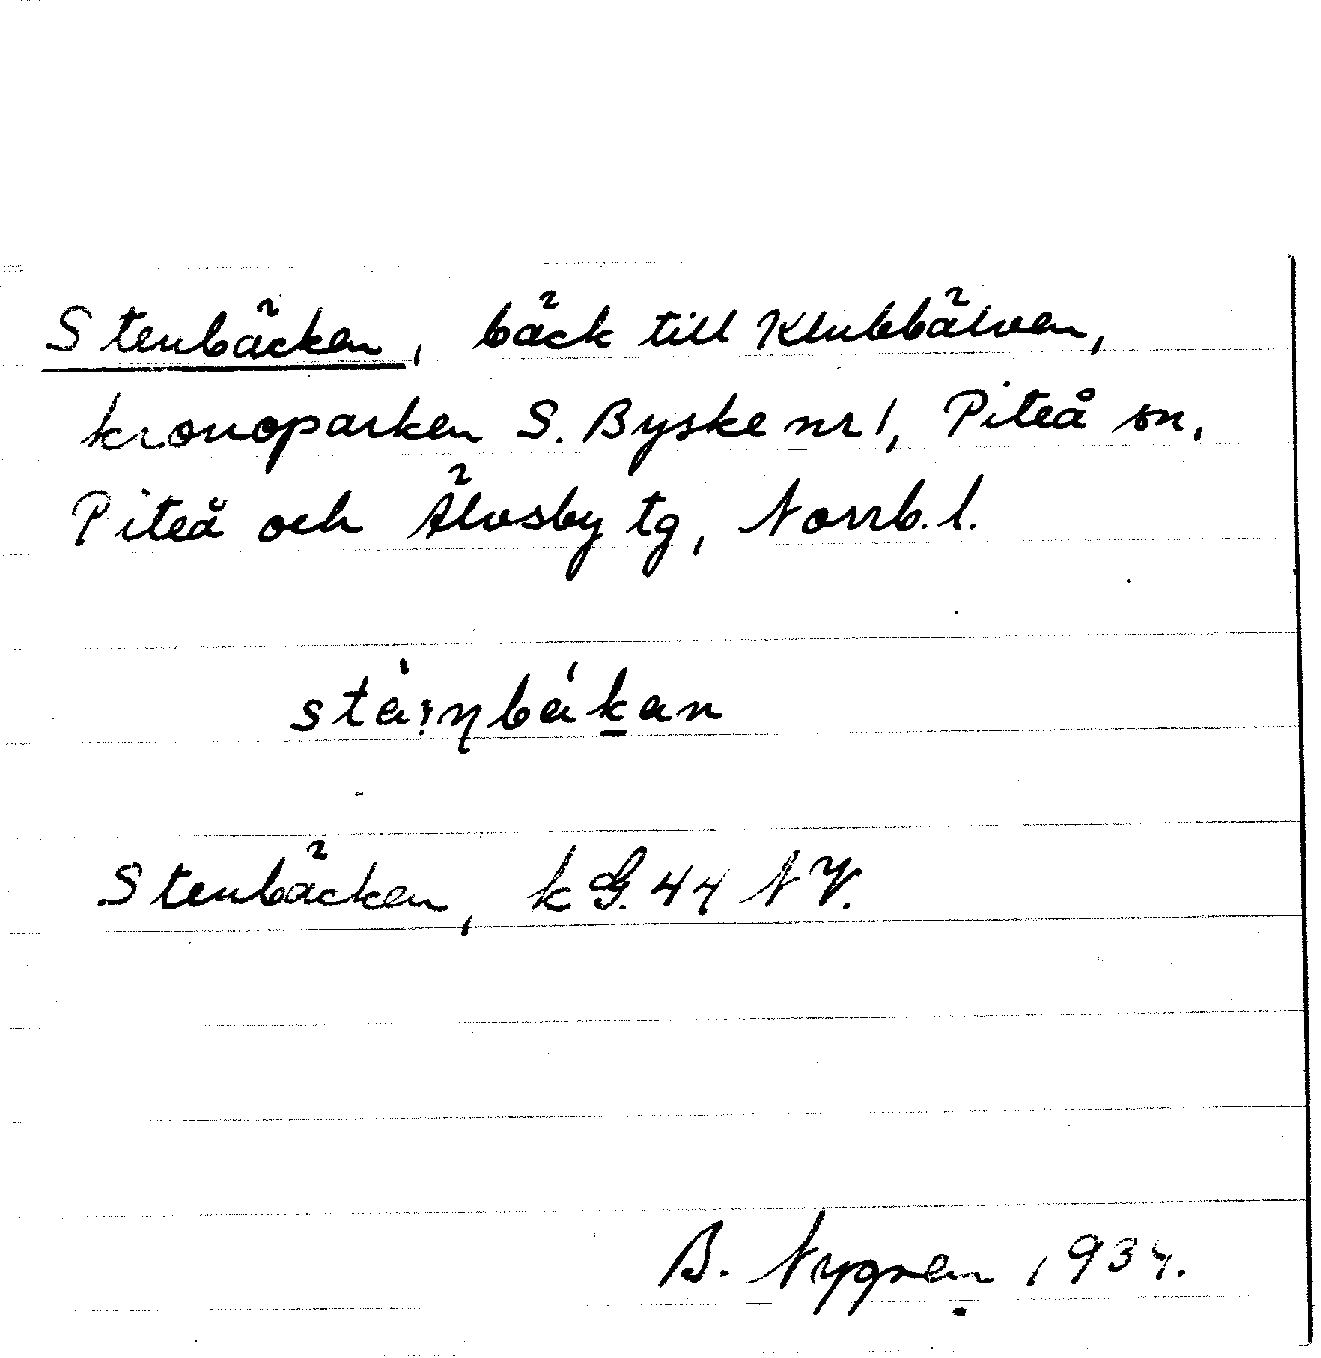 Stenbäcken, bäck till Klubbälven,
kronoparken S. Byske nr 1, Piteå sn,
Piteå och Älvsby tg, Norrb. l.
Stenbäcken, k G. 44 NV.
B. Nygren 1934.